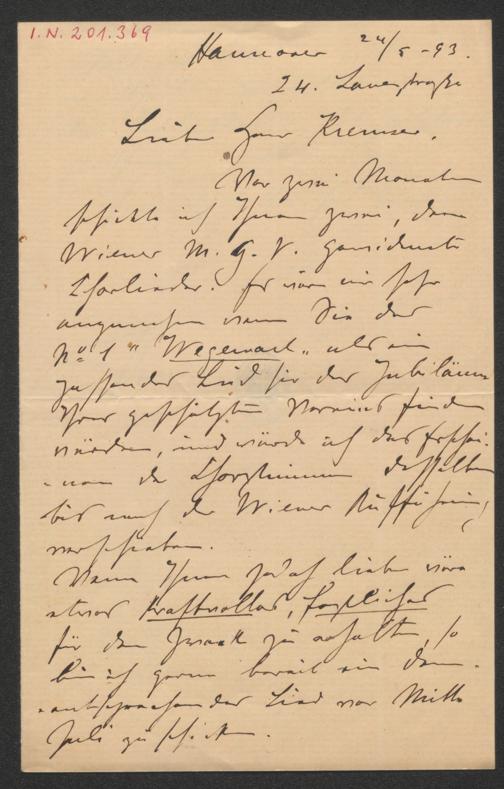 I.N. 201.369
Hannover 24/5 -93.
24. Lavesstraße
Lieber Herr Kremser.
Vor zwei Monaten
schickte ich Ihnen zwei, dem
Wiener M. G. V. gewidmete
Chorlieder. Es wäre mir sehr
angenehm wenn Sie das
No 1 "Wegewart" als ein
passendes Lied für das Jubiläum
Ihres geschätzten Vereins finden
würden, und würde ich das Erschei-
-nen der Chorstimmen desselben
bis nach der Wiener Aufführung
verschieben.
Wenn Ihnen jedoch lieber wäre
etwas Kraftvolles, Festliches
für den Zweck zu erhalten, so
bin ich gerne bereit ein dem-
-entsprechendes Lied vor Mitte
Juli zu schicken.